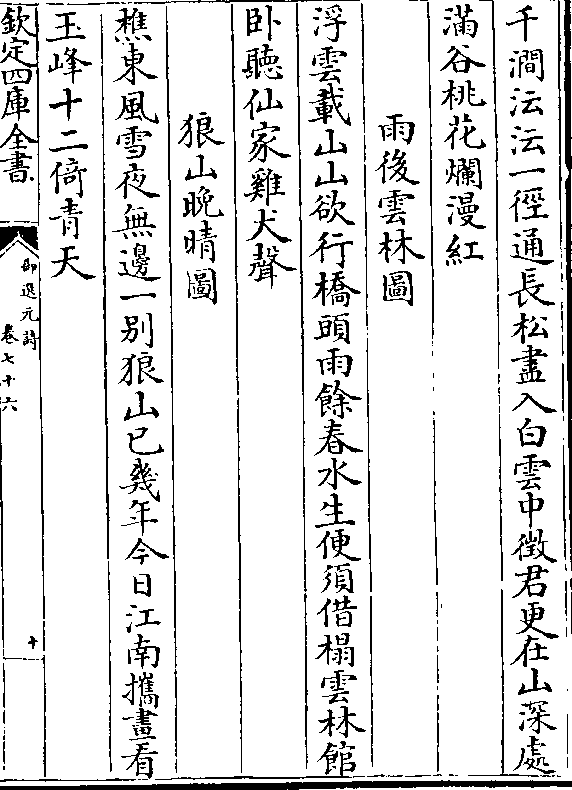 千澗沄沄一徑通長松盡入白雲中徵君更在山深處
滿谷桃花爛漫紅
雨後雲林圖
浮雲載山山欲行橋頭雨餘春水生便須借榻雲林館
卧聽仙家雞犬聲
狼山晚晴圖
樵東風雪夜無邊一别狼山已幾年今日江南攜畫看
玉峰十二倚青天
欽定四庫全書
御選元詩
卷七十六
十